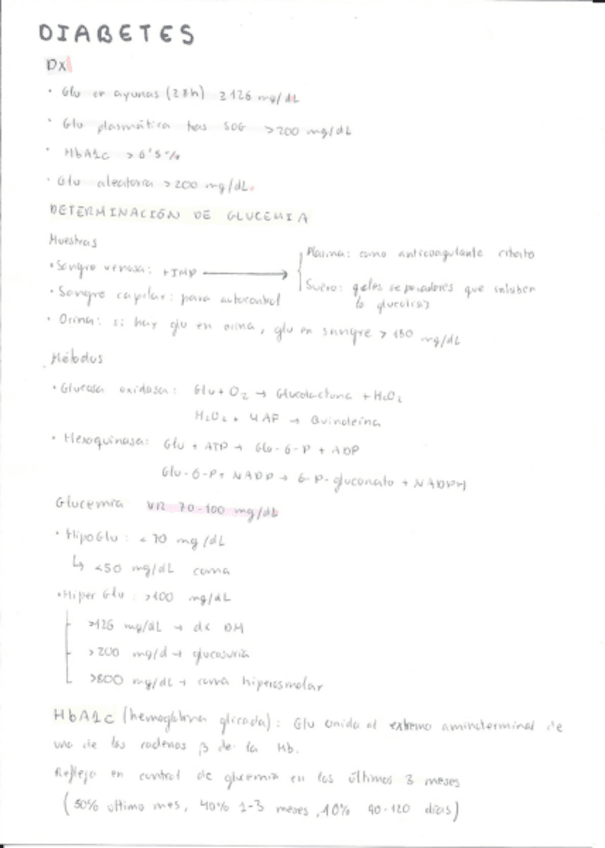 DIABETES
Dx
· Glu en ayunas (≥8h) ≥126 mg/dL
· Glu plasmática tras SOG >200 mg/dL
· HbA1c > 6'5%
· Glu aleatoria >200 mg/dL.
DETERMINACIÓN DE GLUCEMIA
Muestras
· Sangre venosa: +IMP → Plasma: como anticoagulante
· Sangre capilar: para autocontrol Suero: geles separadores que
la glucólisis
· Orina: si hay glu en orina, glu en sangre > 180 mg/dL
Métodos
· Glucosa oxidasa: Glu + O₂ → Glucolactona + H₂O₂
H₂O₂ + 4AF → Quinoleína
· Hexoquinasa: Glu + ATP → Glu-6-P + ADP
Glu-6-P + NADP → 6-P-gluconato + NADPH
Glucemia VR 70-100 mg/dL
· HipoGlu: <70 mg/dL
↳ <50 mg/dL coma
· HiperGlu: >100 mg/dL
>126 mg/dL → dx DM
>200 mg/d → glucosuria
>800 mg/dL → coma hiperosmolar
HbA1c (hemoglobina glicada): Glu unida al extremo aminoterminal de
una de las cadenas β de la Hb.
Reflejo en control de glucemia en los últimos 3 meses
(50% último mes, 40% 1-3 meses, 10% 90-120 días)